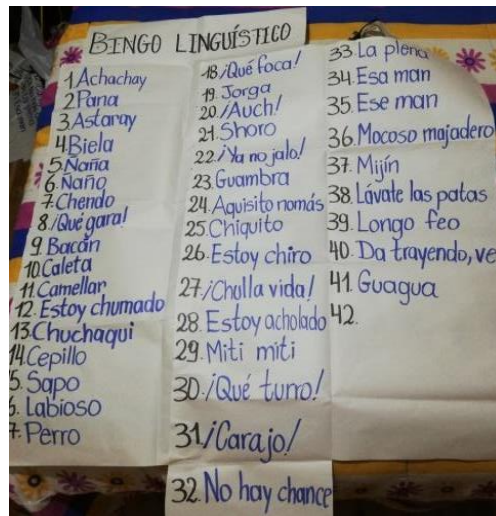 BINGO LINGUÍSTICO
1 Achachay
2 Pana
3. Astaray
4. Biela
5. Ñaña
6. Ñaño
7. Chendo
8. ¡Qué gara!
9. Bacán
10. Caleta
11. Camellar
12. Estoy chumado
13. Chuchaqui
14. Cepillo
5. Sapo
6. Labioso
7. Perro
18. ¡Qué foca!
19. Jorga
20. ¡Auch!
21. Shoro
22. ¡Ya no jalo!
23. Guambra
24. Aquisito nomás
25. Chiquito
26. Estoy chiro
27. ¡Chulla vida!
28. Estoy acholado
29. Miti miti
30. ¡Qué turro!
31. ¡Carajo!
32. No hay chance
33. La plena
34. Esa man
35. Ese man
36. Mocoso majadero
37. Mijín
38. Lávate las patas
39. Longo feo
40. Da trayendo, ve
41. Guagua
42.